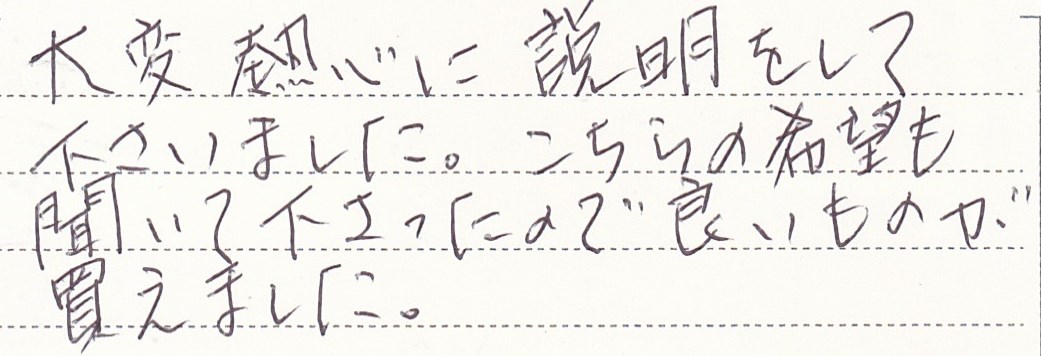 大変熱心に説明をして
下さいました。こちらの希望も
聞いて下さったので良いものが
買えました。